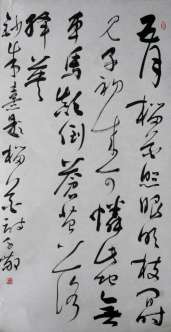 五月榴花照眼明枝間
見子初成可憐此地無
車馬顛倒蒼苔落
絳英
朱熹題榴花詩